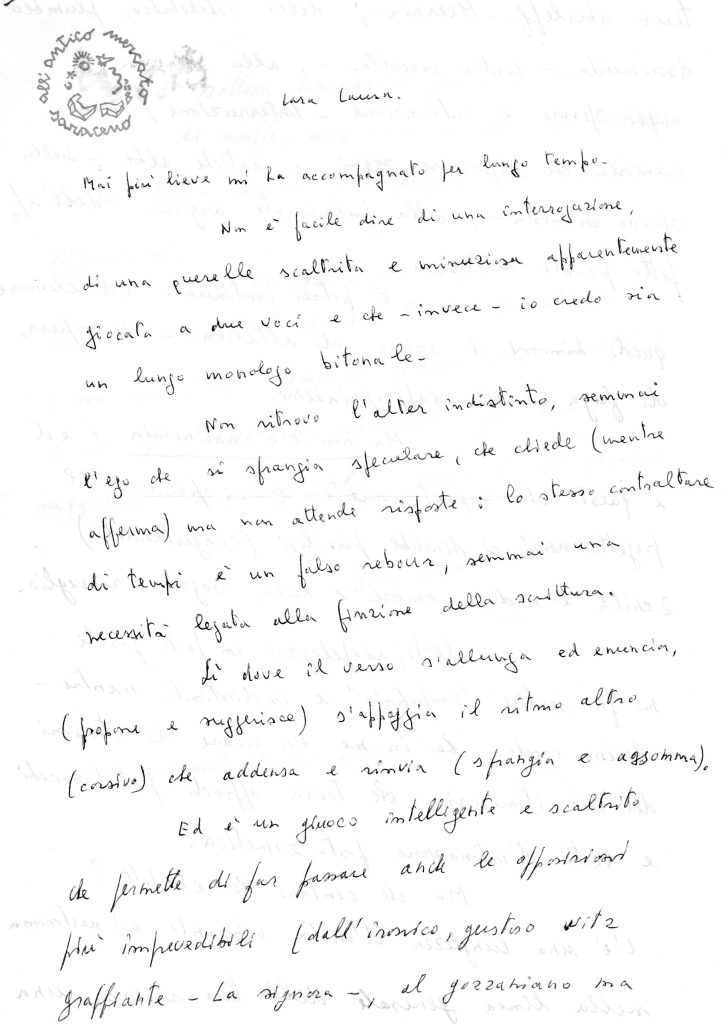 all'antico mercato
saraceno
Cara Laura.
Mai più lieve mi ha accompagnato per lungo tempo.
Non è facile dire di una interrogazione,
di una querelle scaltrita e minuziosa apparentemente
giocata a due voci e che - invece - io credo sia
un lungo monologo bitonale.
Non ritrovo l'alter indistinto, semmai
l'ego che si sfrangia speculare, che chiede (mentre
afferma) ma non attende risposte: lo stesso contraltare
di tempi è un falso rebour, semmai una
necessità legata alla finzione della scrittura.
Lì dove il verso s'allunga ed enuncia,
(propone e suggerisce) s'appoggia il ritmo altro
(corsivo) che addensa e rinvia (sfrangia e assomma).
Ed è un giuoco intelligente e scaltrito
che permette di far passare anche le opposizioni
più imprevedibili (dall'ironico, gustoso witz
graffiante - La signora -, al gozzaniano ma